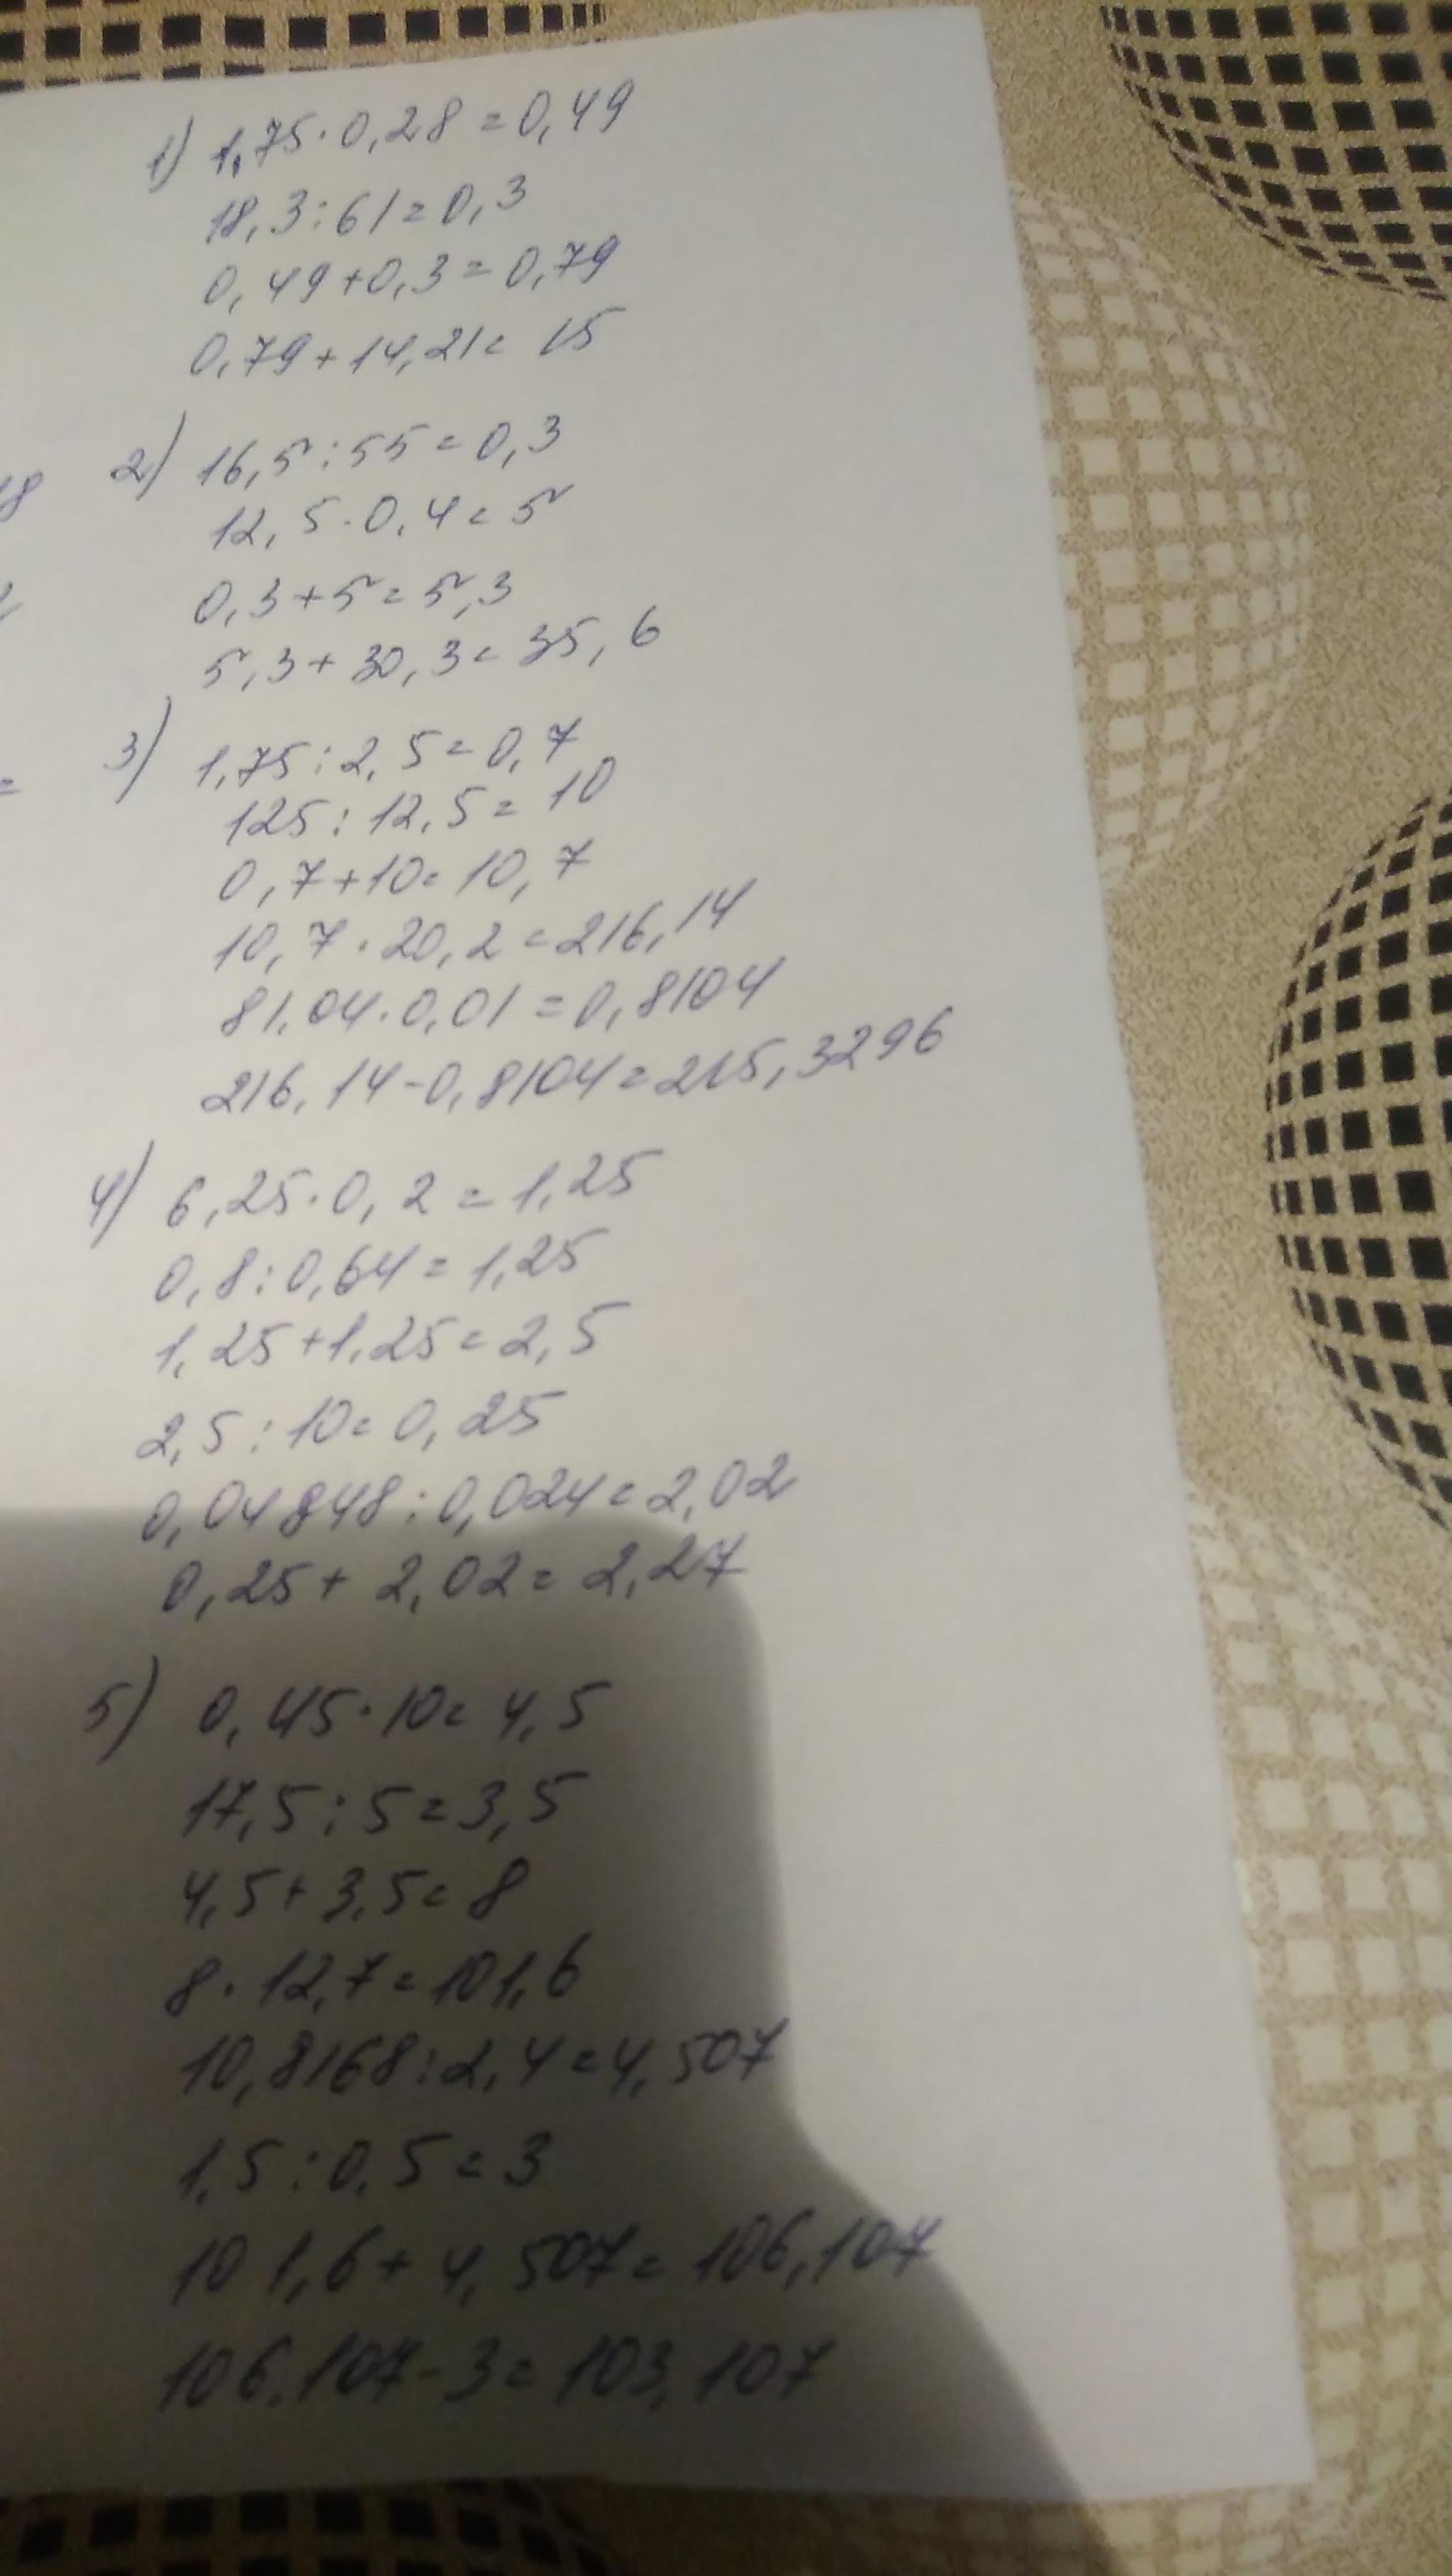 1) 1,75·0,28=0,49
18,3:61=0,3
0,49+0,3=0,79
0,79+14,21=15
2) 16,5:55=0,3
12,5·0,4=5
0,3+5=5,3
5,3+30,3=35,6
3) 1,75:2,5=0,7
125:12,5=10
0,7+10=10,7
10,7·20,2=216,14
81,04·0,01=0,8104
216,14-0,8104=215,3296
4) 6,25·0,2=1,25
0,8:0,64=1,25
1,25+1,25=2,5
2,5:10=0,25
0,04848:0,024=2,02
0,25+2,02=2,27
5) 0,45·10=4,5
17,5:5=3,5
4,5+3,5=8
8·12,7=101,6
10,8168:2,4=4,507
1,5:0,5=3
101,6+4,507=106,107
106,107-3=103,107